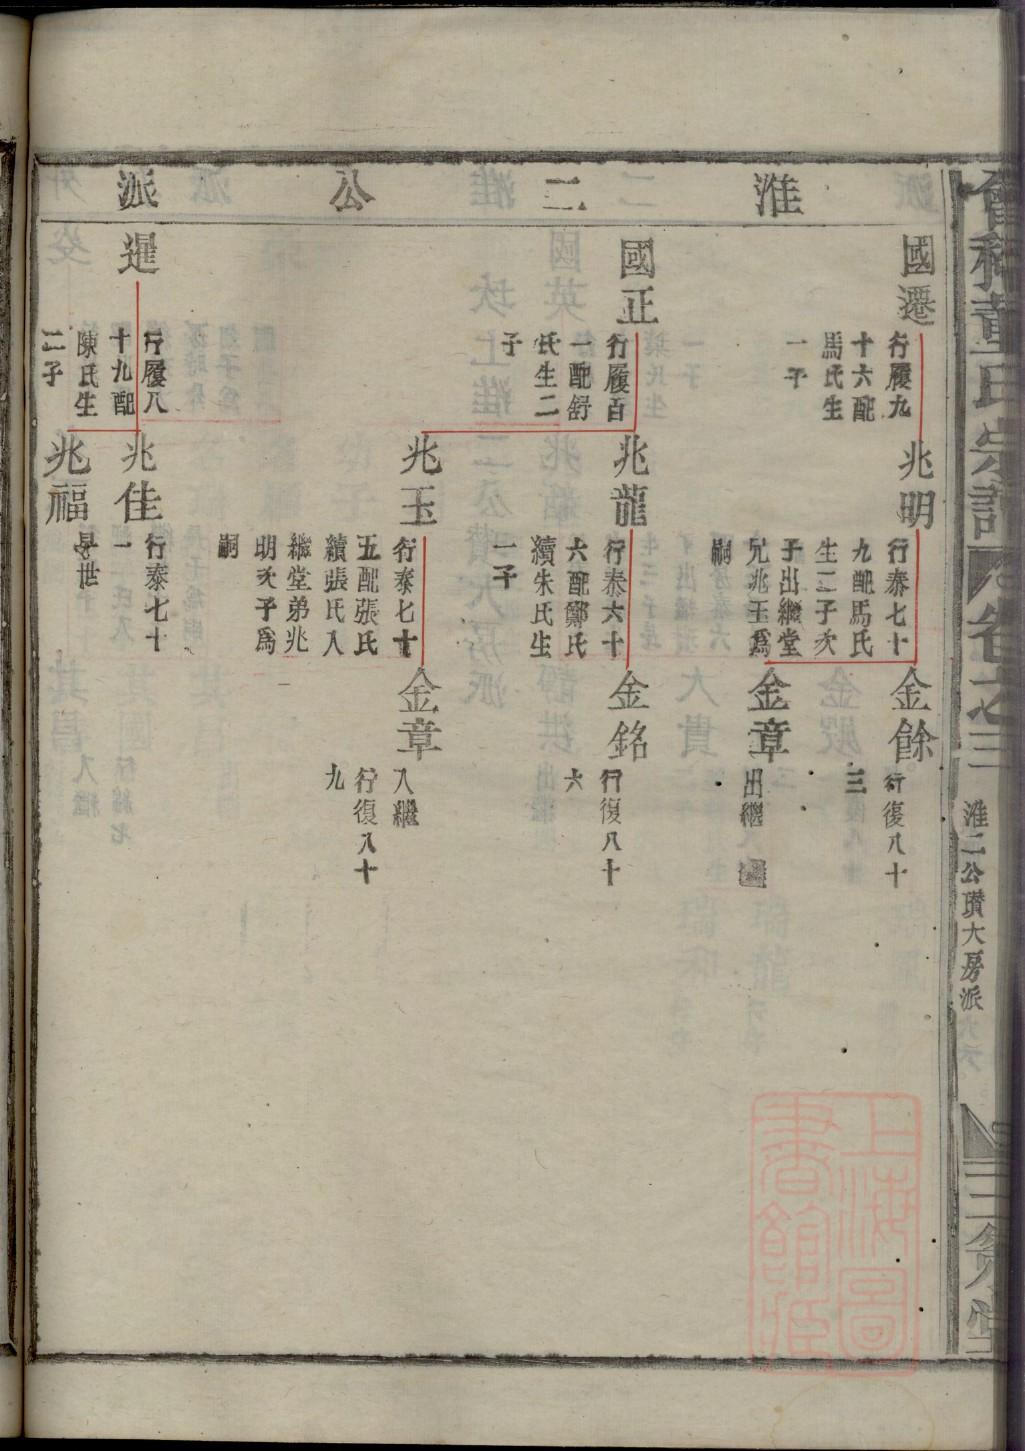 淮二公派
國遷
行履九
十六配
馬氏生
一子
國正
行履百
一配舒
氏生二
子
暹
行履八
十九配
陳氏生
二子
兆明
行泰七十
九配馬氏
生二子次
子出繼堂
兄兆玉爲
嗣
兆龍
行泰六十
六配鄭氏
續朱氏生
一子
兆玉
行泰七十
五配張氏
續張氏入
繼堂弟兆
明次子爲
嗣
兆佳
行泰七十
一
兆福
早世
金餘
行復八十
三
金章
出繼
金銘
行復八十
六
金章
入繼
行復八十
九
董氏宗譜
卷之三
淮二公瓚大房派
三策堂
上海圖
書館藏